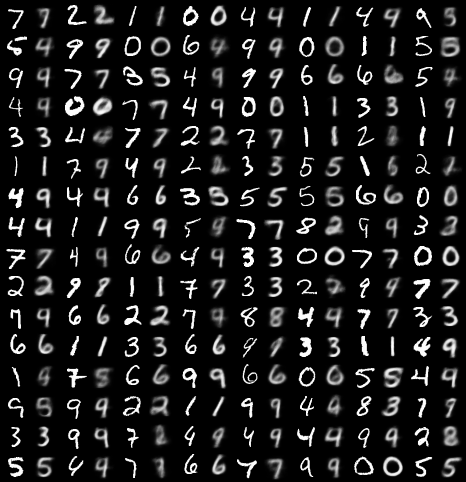 7 7 2 2 1 1 0 0 4 4 1 1 4 9 9 5
5 4 9 9 0 0 6 4 9 9 0 0 1 1 5 5
9 9 7 7 3 5 4 9 9 9 6 6 6 6 5 4
4 9 0 0 7 7 4 9 0 0 1 1 3 3 1 9
3 3 4 4 7 7 2 2 7 7 1 1 2 8 1 1
1 1 7 9 4 9 2 2 3 3 5 5 1 6 2 2
4 9 4 4 6 6 3 5 5 5 5 5 6 6 0 0
4 4 1 1 9 9 5 9 7 7 8 2 9 9 3 3
7 7 4 9 6 6 4 9 3 3 0 0 7 7 0 0
2 2 9 8 1 1 7 7 3 3 2 2 9 9 7 7
7 9 6 6 2 2 7 9 8 8 4 4 7 7 3 3
6 6 1 1 3 3 6 6 9 9 3 3 1 1 4 9
1 9 7 5 6 6 9 9 6 6 0 0 5 5 4 4
9 5 9 9 2 2 1 1 9 9 4 4 8 3 7 9
3 3 9 9 7 8 4 9 4 9 4 4 9 9 2 8
5 5 4 4 7 7 6 6 7 7 9 9 0 0 5 5